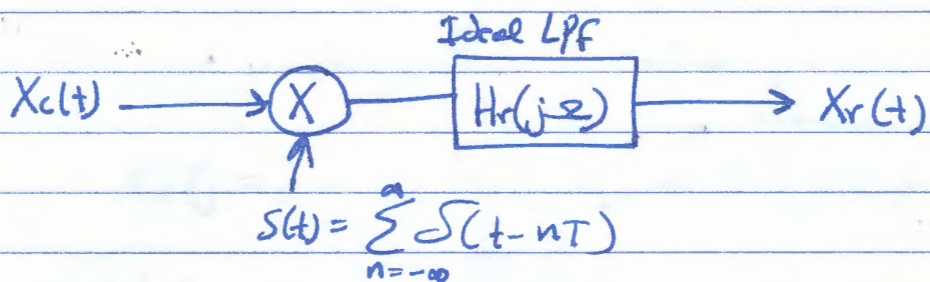 Ideal LPf
Xc(t) X Hr(jΩ) Xr(t)
S(t) = ∞ ∑ n=-∞ δ(t-nT)